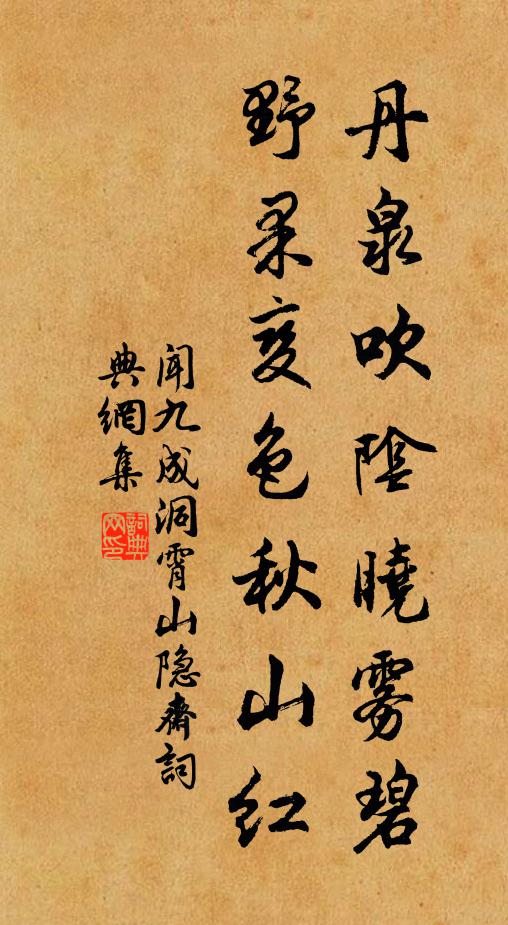 丹泉吹陰曉雾碧
野果变色秋山红
闻九成洞霄山隐齋詞
典網集
詞典
网印